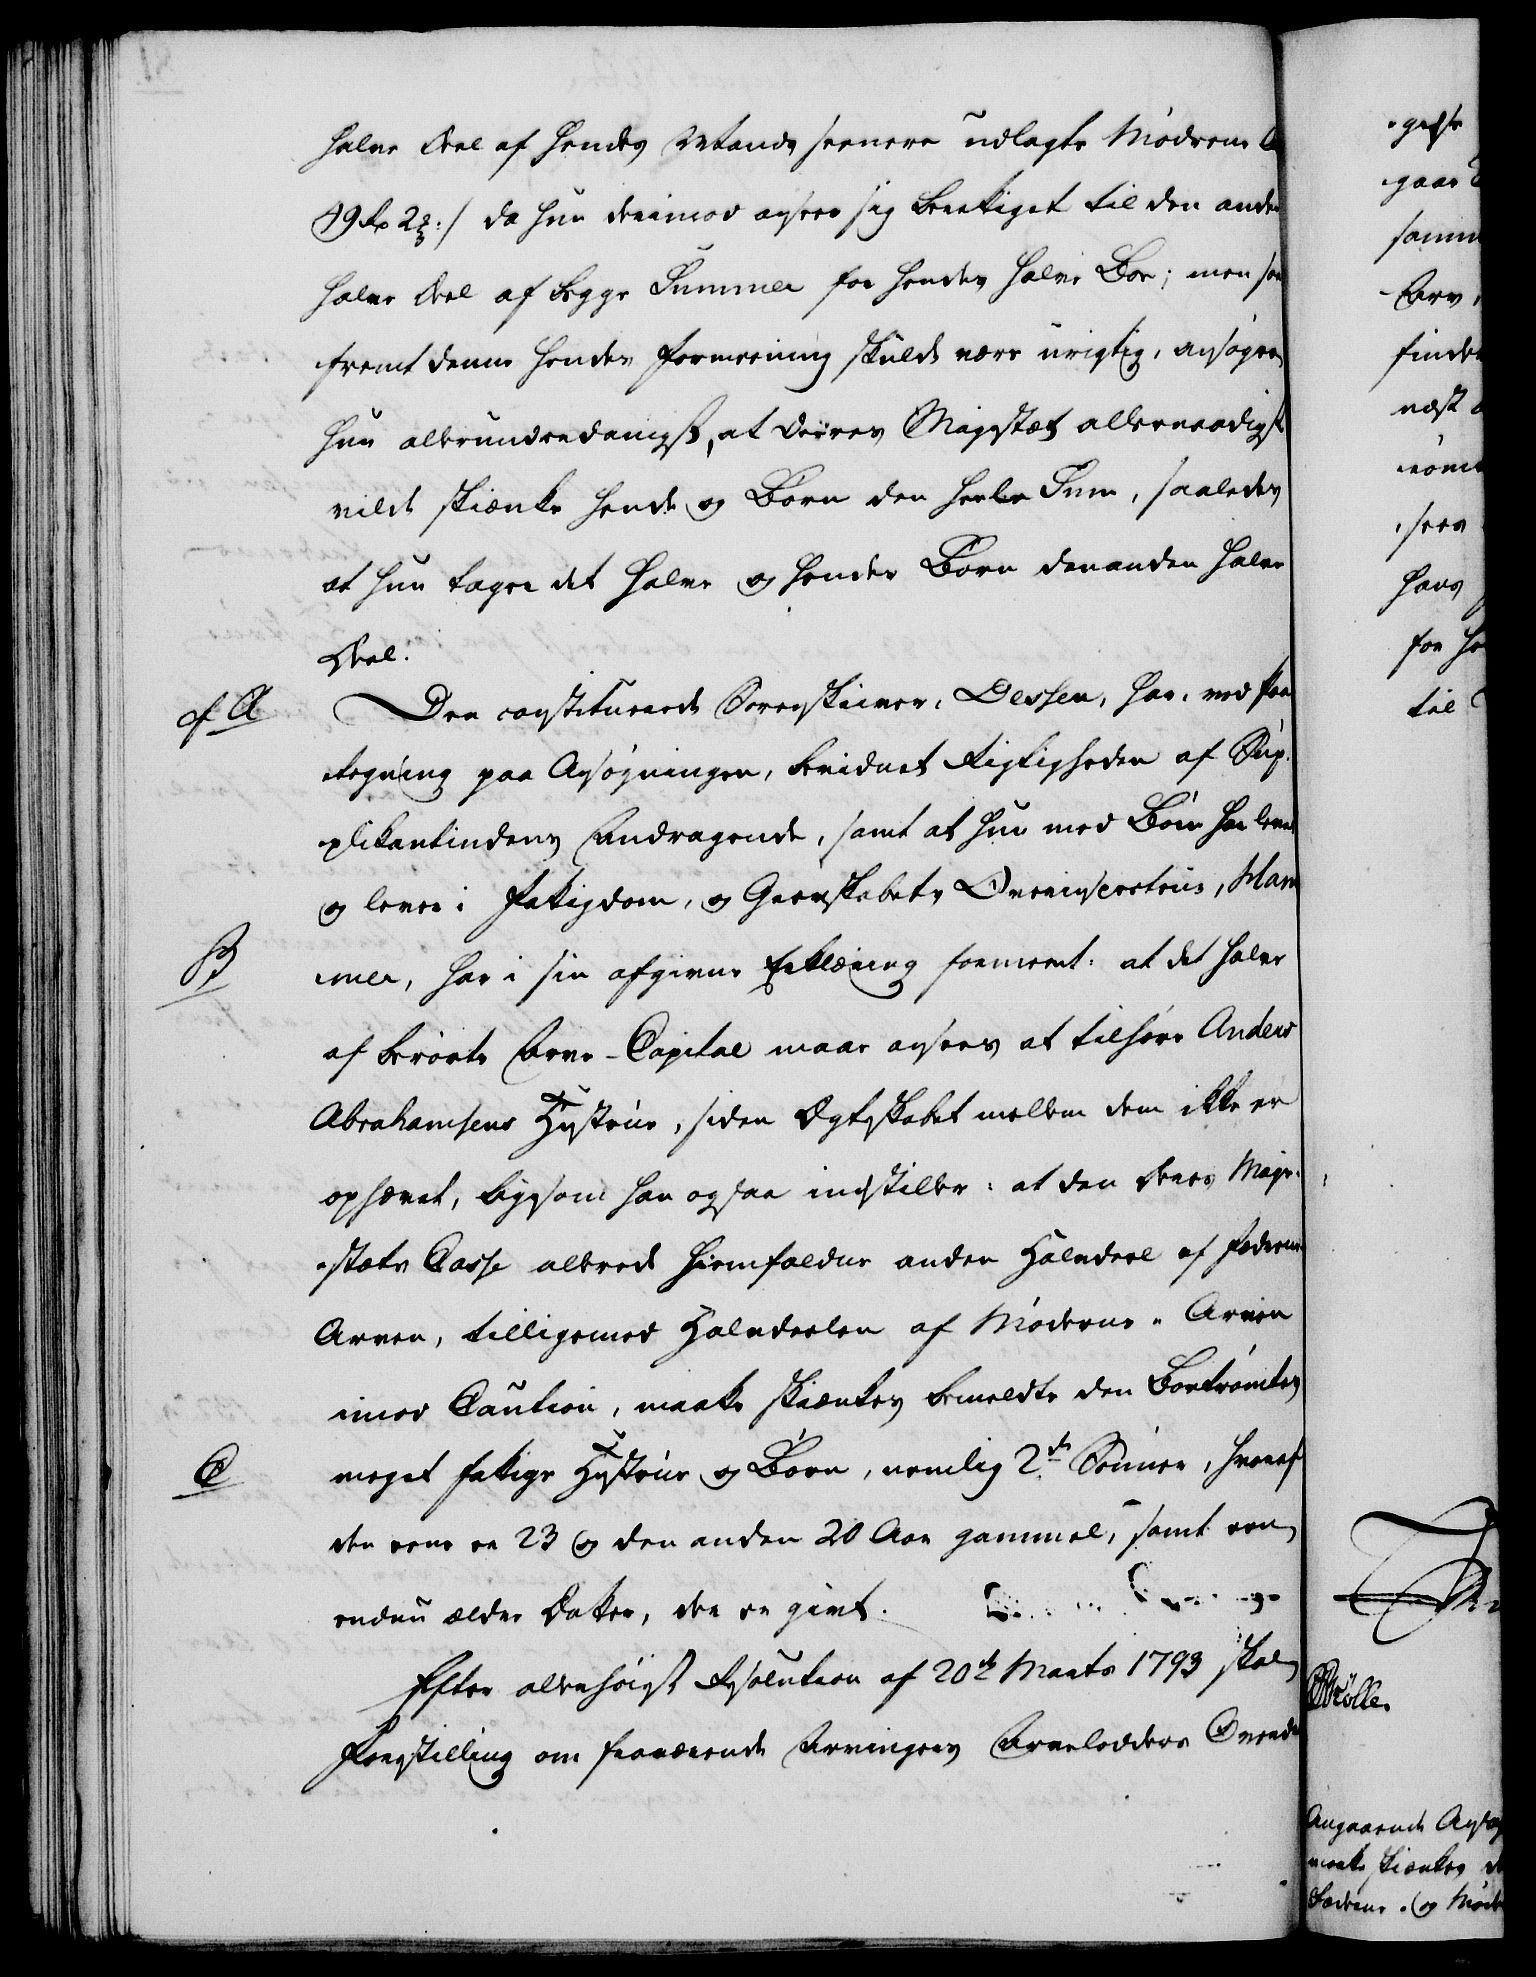 halve Deel af hendes Mands senere udlagte Mødrene
49 Rd 2 2/3 :/ da hun derimod anseer sig berettiget til den anden
halve Deel af begge Summer for hendes halve Boe; men saa
fremt denne hendes Formeening skulde være urigtig, ansøger
hun allerunderdanigst, at Deres Majestæt allernaadigst
vilde skiænke hende og Børn den heele Sum, saaledes
at hun tager det halve og hendes Børn den anden halve
Deel.
A Den constituerede Sorenskriver, Dessen, har, ved Paa
tegning paa Ansøgningen, bevidnet Rigtigheden af Sup-
plikantindens Andragende, samt at hun med Børn har levet
og lever i Fattigdom, og Grevskabets Overinspecteur, Ham
B mer, har i sin afgivne Erklæring formeent: at det halve
af berørte Arve-Capital maae ansees at tilhøre Anders
Abrahamsens Hustrue, siden Ægteskabet mellem dem ikke er
ophævet, ligesom han ogsaa indstiller: at den Deres Maje-
stæts Casse allerede hiemfaldne anden Halvdeel af Fædrene
Arven, tilligemed Halvdeelen af Mødrene-Arven
imod Caution, maatte skiænkes bemeldte den Bortrømtes
C meget fattige Hustrue og Børn, nemlig 2de Sønner, hvoraf
den eene er 23 og den anden 20 Aar gammel, samt een
endnu ældre Datter, der er givt.
Efter allerhøieste Resolution af 20de Marts 1793 skal
Forestilling om fraværende Arvingers Arvelodders
gaae
samme
Arv
finde
næst
rømt
sees
hans
for
til
Møller
Angaaende
maatte skiænkes
Fædrene- og